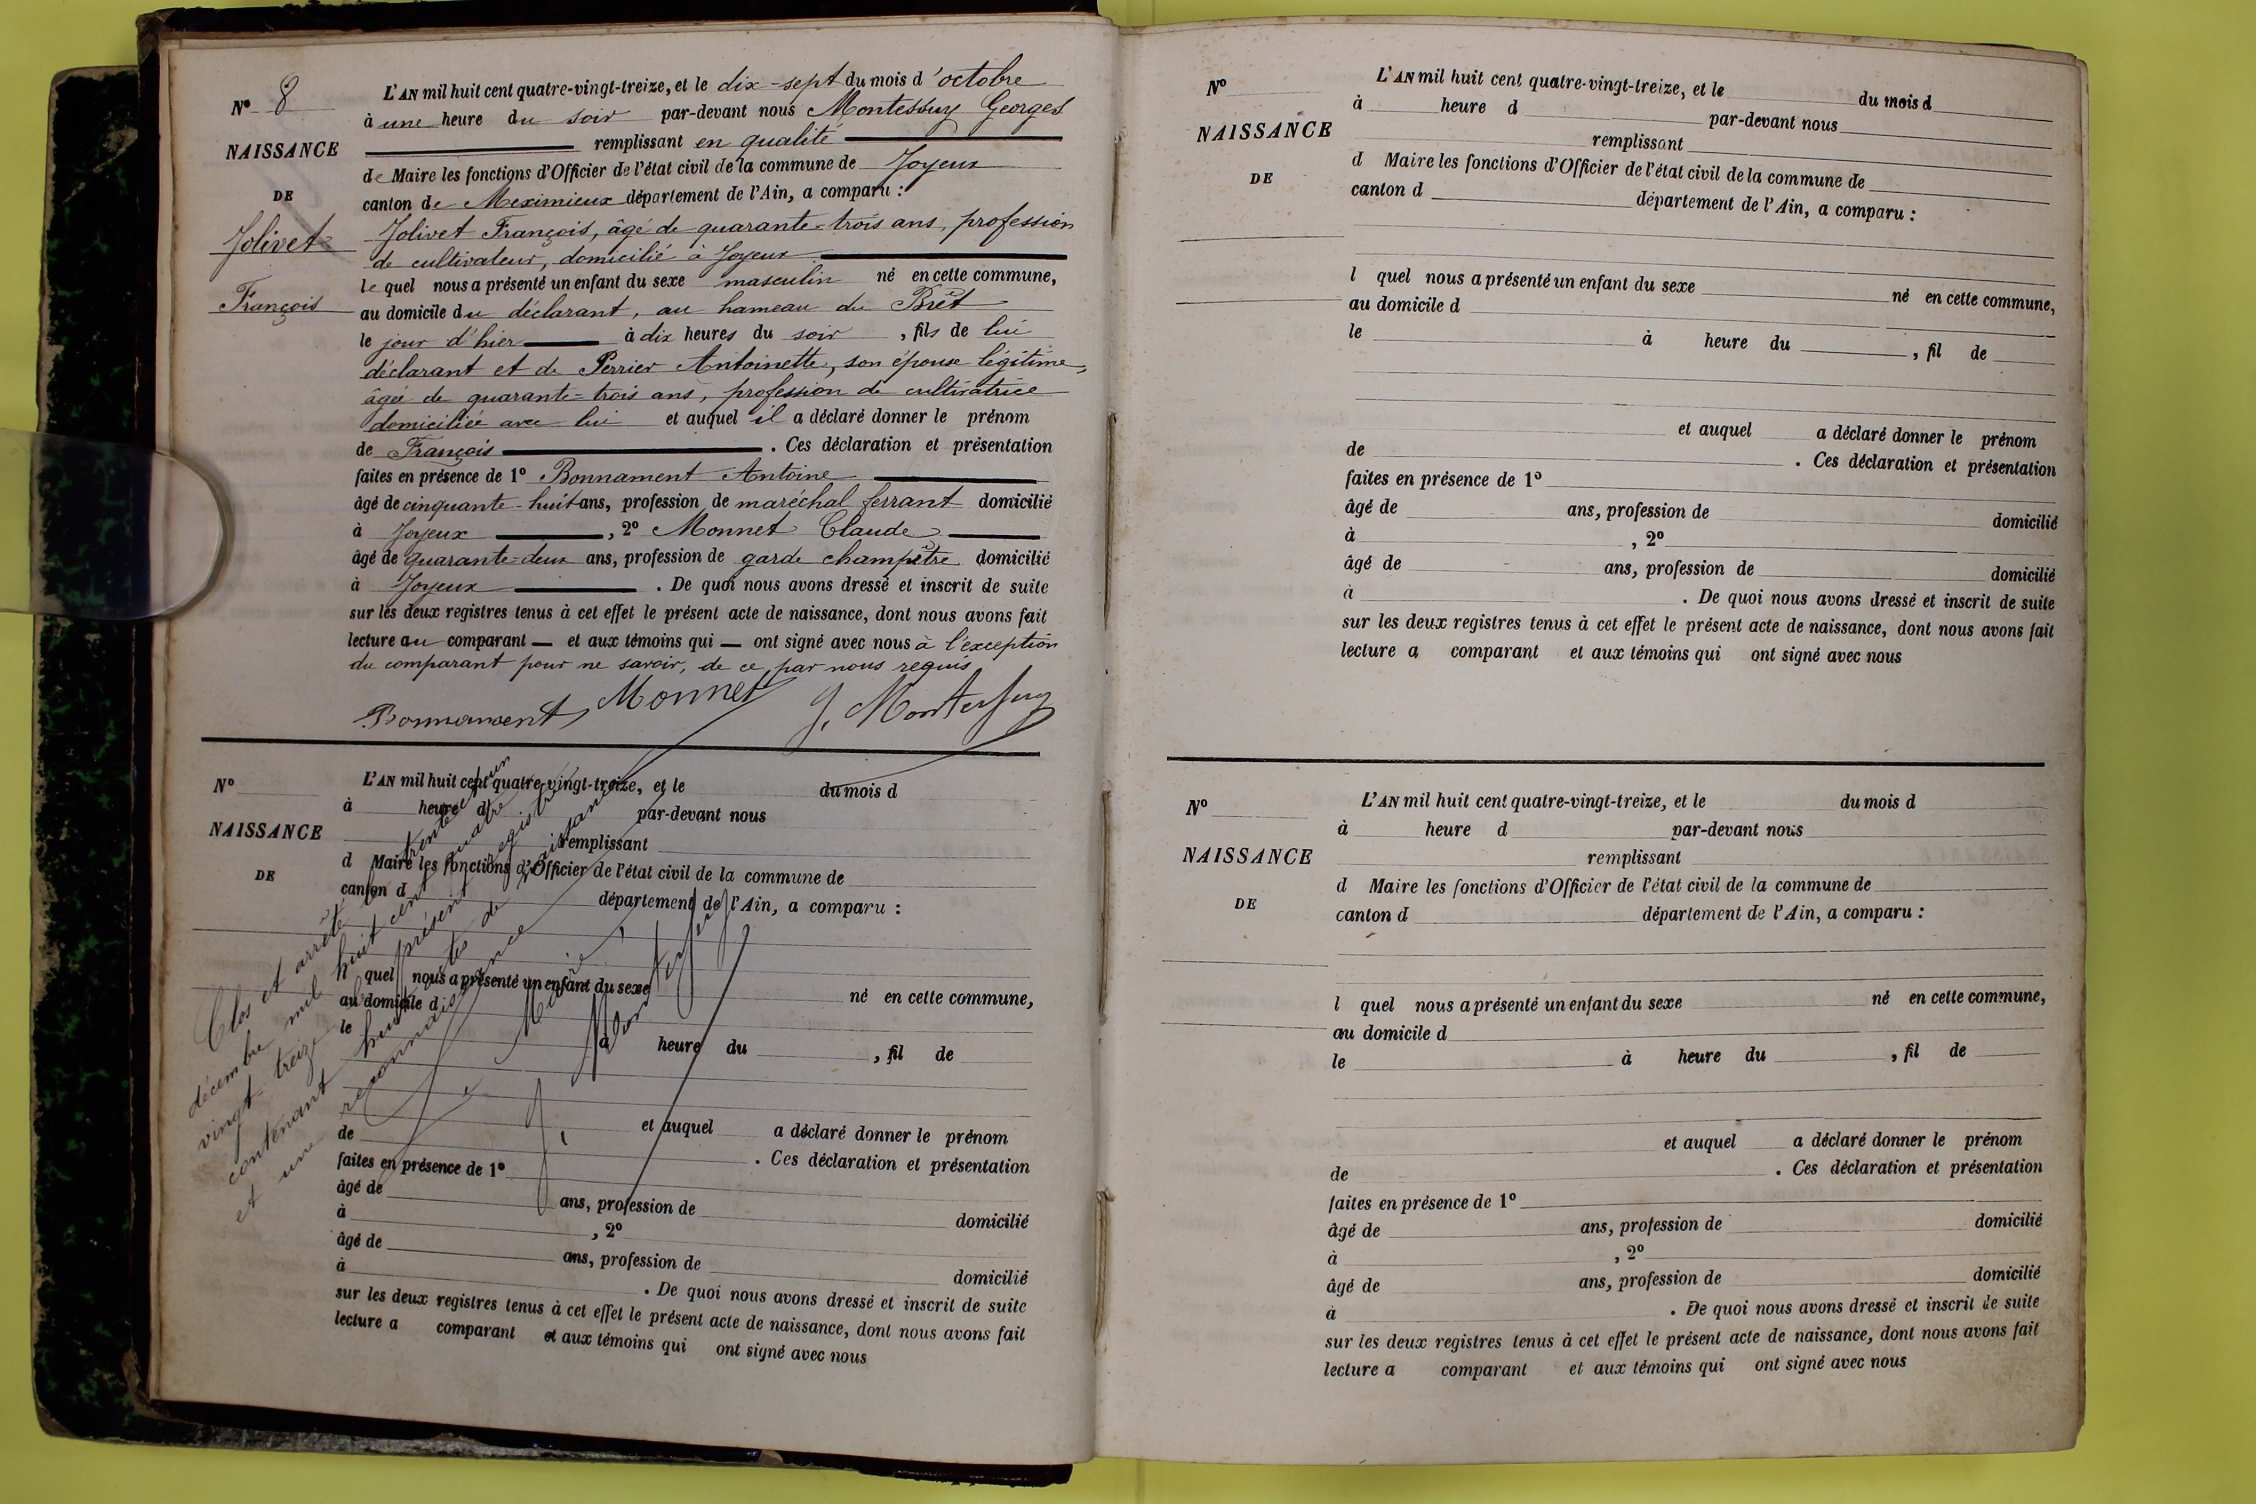 N° 8
NAISSANCE
DE
Jolivet
François
L'AN mil huit cent quatre-vingt-treize, et le dix-sept du mois d'octobre
à une heure du soir par-devant nous Montessuy Georges
remplissant en qualité
de Maire les fonctions d'Officier de l'état civil de la commune de Joyeux
canton de Meximieux département de l'Ain, a comparu :
Jolivet François, âgé de quarante=trois ans, profession
de cultivateur, domicilié à Joyeux
le quel nous a présenté un enfant du sexe masculin né en cette commune,
au domicile du déclarant, au hameau du Brêt
le jour d'hier à dix heures du soir , fils de lui
déclarant et de Perrier Antoinette, son épouse légitime,
âgée de quarante=trois ans, profession de cultivatrice
domiciliée avec lui et auquel il a déclaré donner le prénom
de François . Ces déclaration et présentation
faites en présence de 1° Bonnament Antoine
âgé de cinquante-huit ans, profession de maréchal ferrant domicilié
à Joyeux , 2° Monnet Claude
âgé de quarante=deux ans, profession de garde champêtre domicilié
à Joyeux . De quoi nous avons dressé et inscrit de suite
sur les deux registres tenus à cet effet le présent acte de naissance, dont nous avons fait
lecture au comparant — et aux témoins qui — ont signé avec nous à l'exception
du comparant pour ne savoir, de ce par nous requis
Bonnament Monnet G. Montessuy
N°
NAISSANCE
DE
L'AN mil huit cent quatre-vingt-treize, et le du mois d
à heure d par-devant nous
remplissant
d Maire les fonctions d'Officier de l'état civil de la commune de
canton d département de l'Ain, a comparu :
l quel nous a présenté un enfant du sexe né en cette commune,
au domicile d
le à heure du , fil de
et auquel a déclaré donner le prénom
de . Ces déclaration et présentation
faites en présence de 1°
âgé de ans, profession de domicilié
à , 2°
âgé de ans, profession de domicilié
à . De quoi nous avons dressé et inscrit de suite
sur les deux registres tenus à cet effet le présent acte de naissance, dont nous avons fait
lecture a comparant et aux témoins qui ont signé avec nous
Clos et arrêté le trente et un
décembre mil huit cent quatre
vingt-treize le présent registre
contenant huit actes de naissance
et une reconnaissance
Le Maire,
G. Montessuy
N°
NAISSANCE
DE
L'AN mil huit cent quatre-vingt-treize, et le du mois d
à heure d par-devant nous
remplissant
d Maire les fonctions d'Officier de l'état civil de la commune de
canton d département de l'Ain, a comparu :
l quel nous a présenté un enfant du sexe né en cette commune,
au domicile d
le à heure du , fil de
et auquel a déclaré donner le prénom
de . Ces déclaration et présentation
faites en présence de 1°
âgé de ans, profession de domicilié
à , 2°
âgé de ans, profession de domicilié
à . De quoi nous avons dressé et inscrit de suite
sur les deux registres tenus à cet effet le présent acte de naissance, dont nous avons fait
lecture a comparant et aux témoins qui ont signé avec nous
N°
NAISSANCE
DE
L'AN mil huit cent quatre-vingt-treize, et le du mois d
à heure d par-devant nous
remplissant
d Maire les fonctions d'Officier de l'état civil de la commune de
canton d département de l'Ain, a comparu :
l quel nous a présenté un enfant du sexe né en cette commune,
au domicile d
le à heure du , fil de
et auquel a déclaré donner le prénom
de . Ces déclaration et présentation
faites en présence de 1°
âgé de ans, profession de domicilié
à , 2°
âgé de ans, profession de domicilié
à . De quoi nous avons dressé et inscrit de suite
sur les deux registres tenus à cet effet le présent acte de naissance, dont nous avons fait
lecture a comparant et aux témoins qui ont signé avec nous